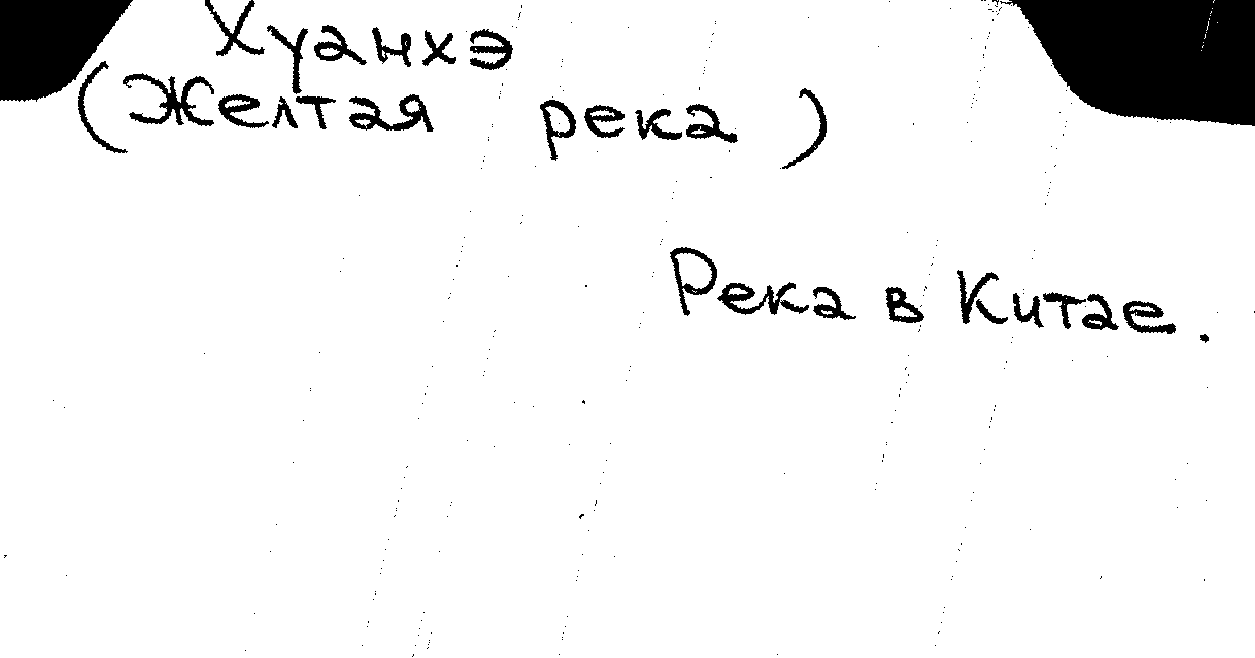 Хуанхэ
(Желтая река)
Река в Китае.